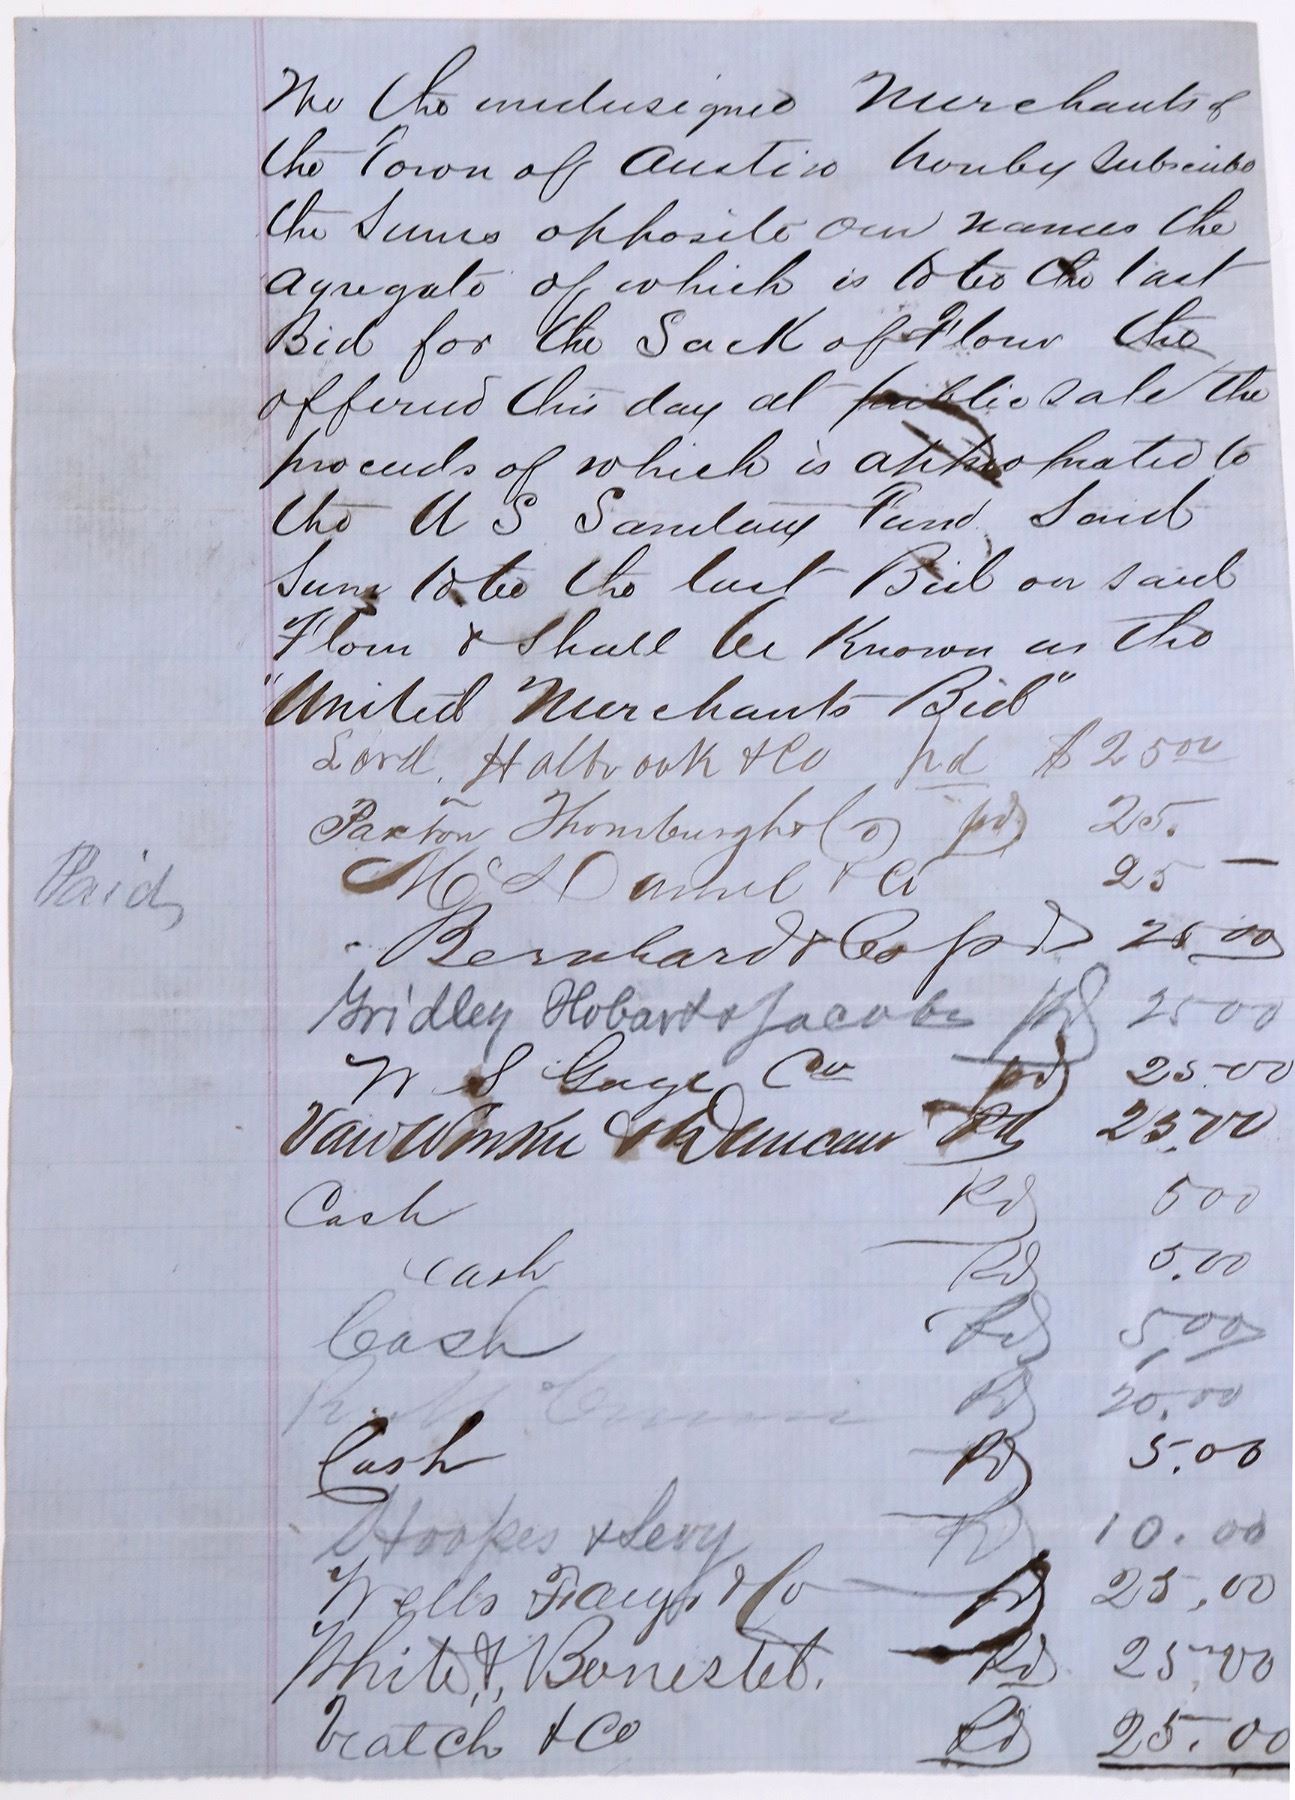 We the undersigned Merchants of
the Town of Austin hereby subscribe
the Sums opposite our names the
agregate of which is to be the last
Bid for the Sack of Flour the
offered this day at public sale the
proceeds of which is appropriated to
the U S Sanitary Fund Said
Sum to be the last Bid on said
Flour & shall be Known as the
"United Merchants Bid"
Lord. Holbrook & Co pd $25 00
Paxton Thornburgh & Co pd 25.
McDaniel & Co 25 —
Paid
Bernhard & Co pd 25 00
Gridley Hobart & Jacobs pd 25 00
W S Gage Co pd 25.00
Van Winkle & Duncan Pd 25.00
Cash Pd 5 00
Cash Pd 5.00
Cash Pd 5,00
R. M. Pd 20.00
Cash Pd 5.00
Hoopes & Levy Pd 10.00
Wells Fargo & Co Pd 25,00
White & Bonestel. Pd 25.00
Veatch & Co Pd 25.00